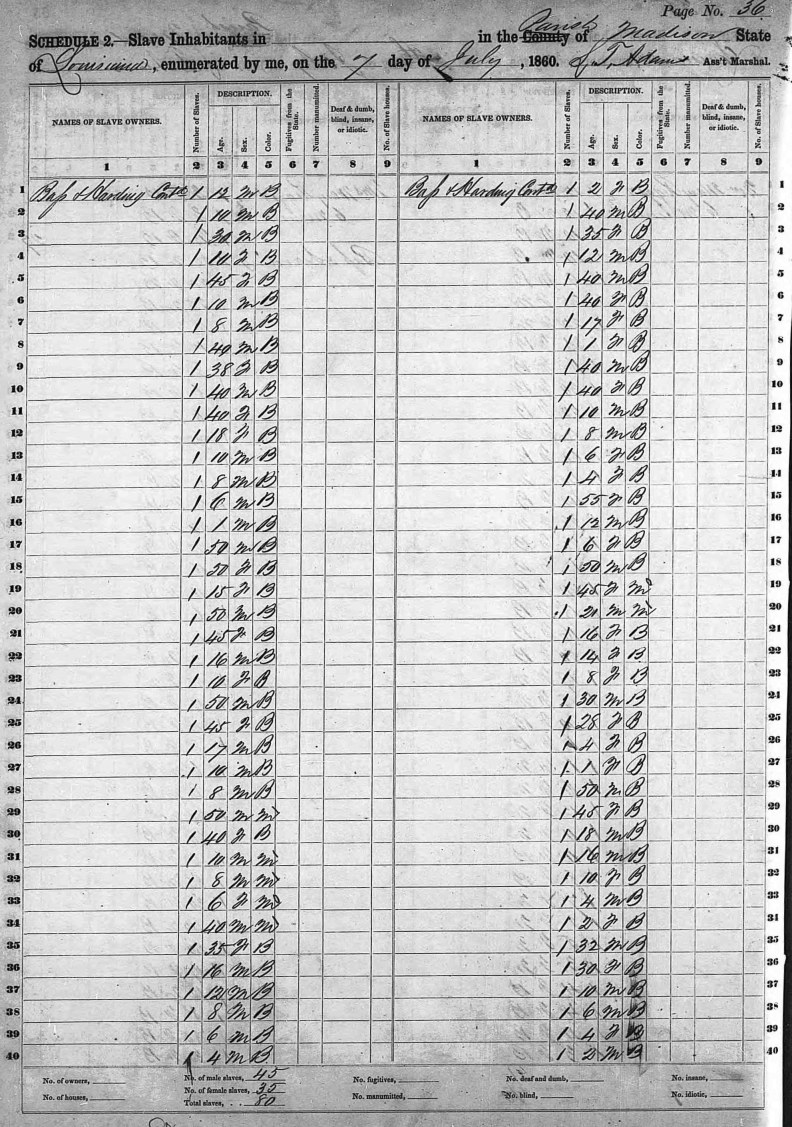 Page No. 36
SCHEDULE 2.—Slave Inhabitants in in the County Parish of Madison State
of Louisiana, enumerated by me, on the 7 day of July, 1860. Adams Ass't Marshal.
NAMES OF SLAVE OWNERS. Number of Slaves. DESCRIPTION. Age. Sex. Color. Fugitives from the State. Number manumitted. Deaf & dumb, blind, insane, or idiotic. No. of Slave houses. NAMES OF SLAVE OWNERS. Number of Slaves. DESCRIPTION. Age. Sex. Color. Fugitives from the State. Number manumitted. Deaf & dumb, blind, insane, or idiotic. No. of Slave houses.
1 2 3 4 5 6 7 8 9 1 2 3 4 5 6 7 8 9
1 Bass & Harding Contd 1 12 M B Bass & Harding Contd 1 2 F B 1
2 1 10 M B 1 40 M B 2
3 1 30 M B 1 35 F B 3
4 1 10 F B 1 12 M B 4
5 1 45 F B 1 40 M B 5
6 1 10 M B 1 40 F B 6
7 1 8 M B 1 17 F B 7
8 1 40 M B 1 1 F B 8
9 1 38 F B 1 40 M B 9
10 1 40 M B 1 40 F B 10
11 1 40 F B 1 10 M B 11
12 1 18 F B 1 8 M B 12
13 1 10 M B 1 6 F B 13
14 1 8 M B 1 4 F B 14
15 1 6 M B 1 55 F B 15
16 1 1 M B 1 12 M B 16
17 1 50 M B 1 6 F B 17
18 1 50 F B 1 50 M B 18
19 1 15 F B 1 45 F M 19
20 1 50 M B 1 21 M M 20
21 1 45 F B 1 16 F B 21
22 1 16 M B 1 14 F B 22
23 1 10 F B 1 8 F B 23
24 1 50 M B 1 30 M B 24
25 1 45 F B 1 28 F B 25
26 1 17 M B 1 4 F B 26
27 1 10 M B 1 1 F B 27
28 1 8 M B 1 50 M B 28
29 1 50 M M 1 45 F B 29
30 1 40 F B 1 18 M B 30
31 1 10 M M 1 16 M B 31
32 1 8 M M 1 10 F B 32
33 1 6 F M 1 4 M B 33
34 1 40 M M 1 2 F B 34
35 1 35 F B 1 32 M B 35
36 1 16 M B 1 30 F B 36
37 1 12 M B 1 10 M B 37
38 1 8 M B 1 6 M B 38
39 1 6 M B 1 4 F B 39
40 1 4 M B 1 2 M B 40
No. of owners, No. of male slaves, 45 No. fugitives, No. deaf and dumb, No. insane,
No. of houses, No. of female slaves, 35 No. manumitted, No. blind, No. idiotic,
Total slaves, 80